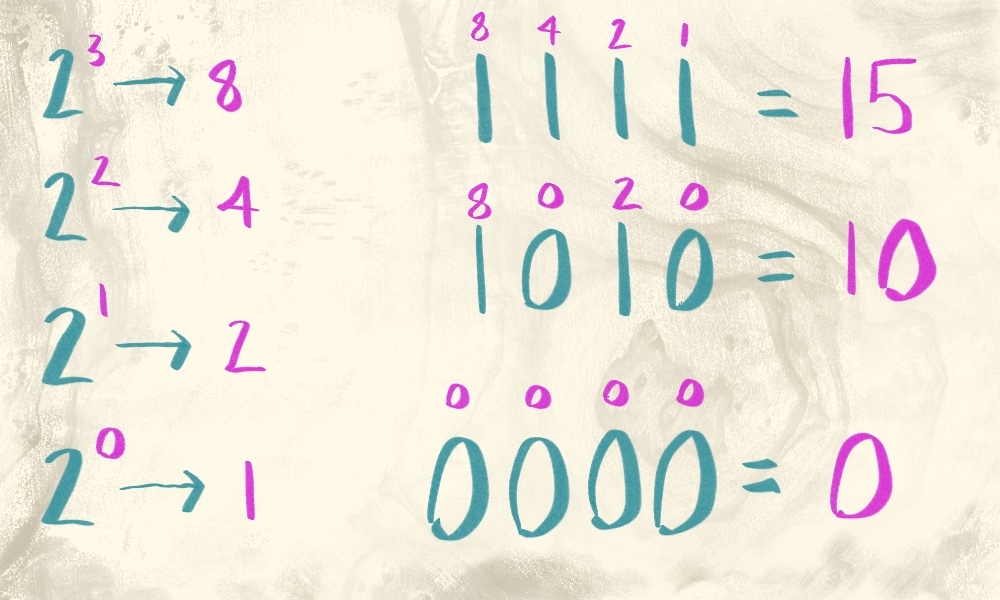 2³ → 8
2² → 4
2¹ → 2
2⁰ → 1
8 4 2 1
1 1 1 1 = 15
8 0 2 0
1 0 1 0 = 10
0 0 0 0
0 0 0 0 = 0